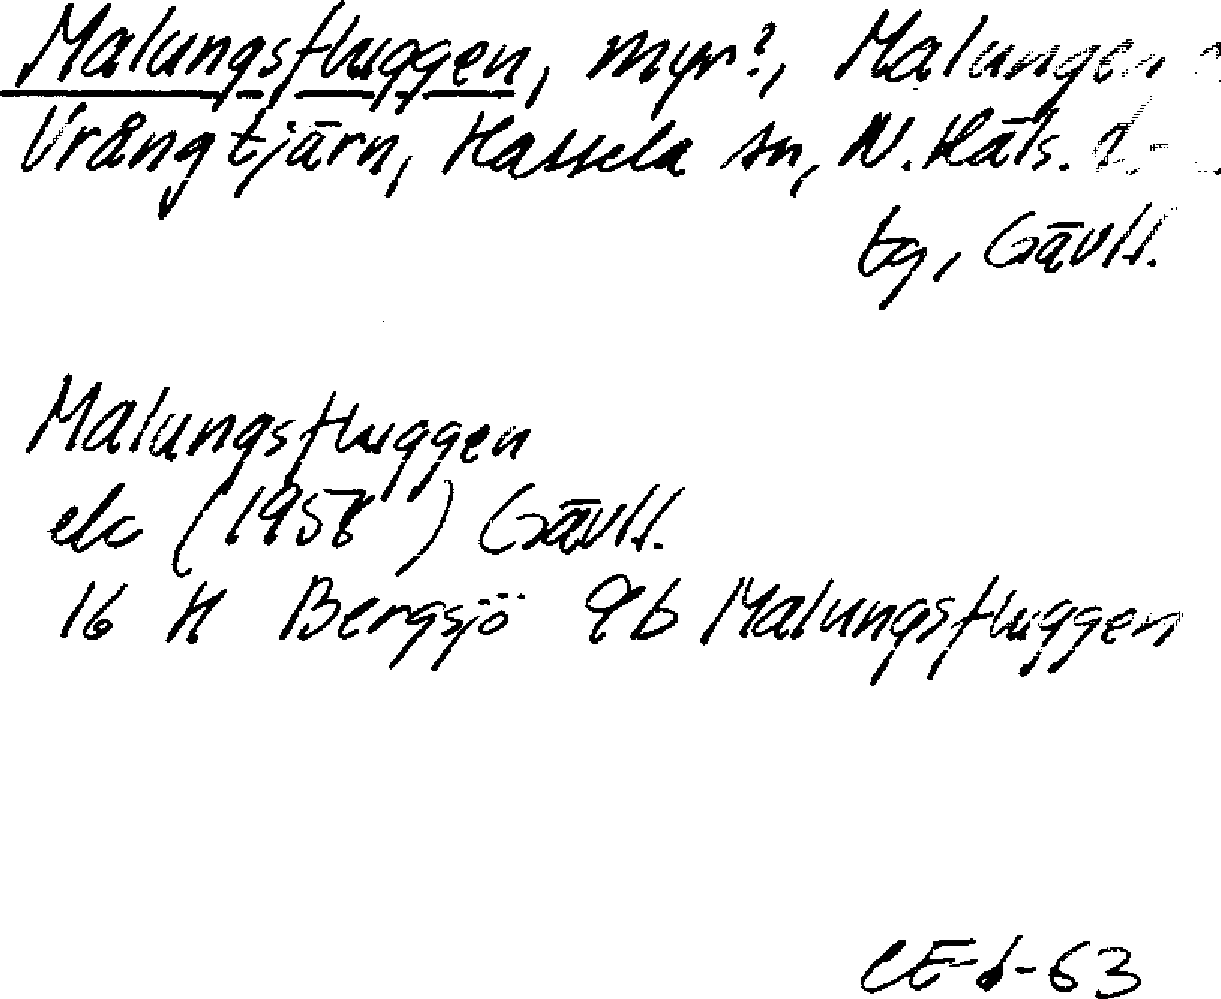 Malungsfluggen, myr?, Malungen o.
Vrångtjärn, Hassela sn, N. Häls.
tg, Gävll.
Malungsfluggen
ek (1958) Gävll.
16 H Bergsjö 9b Malungsfluggen
CE-d-63